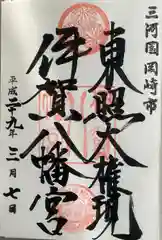 三河国岡崎市
東照大権現
伊賀八幡宮
平成二十九年三月七日